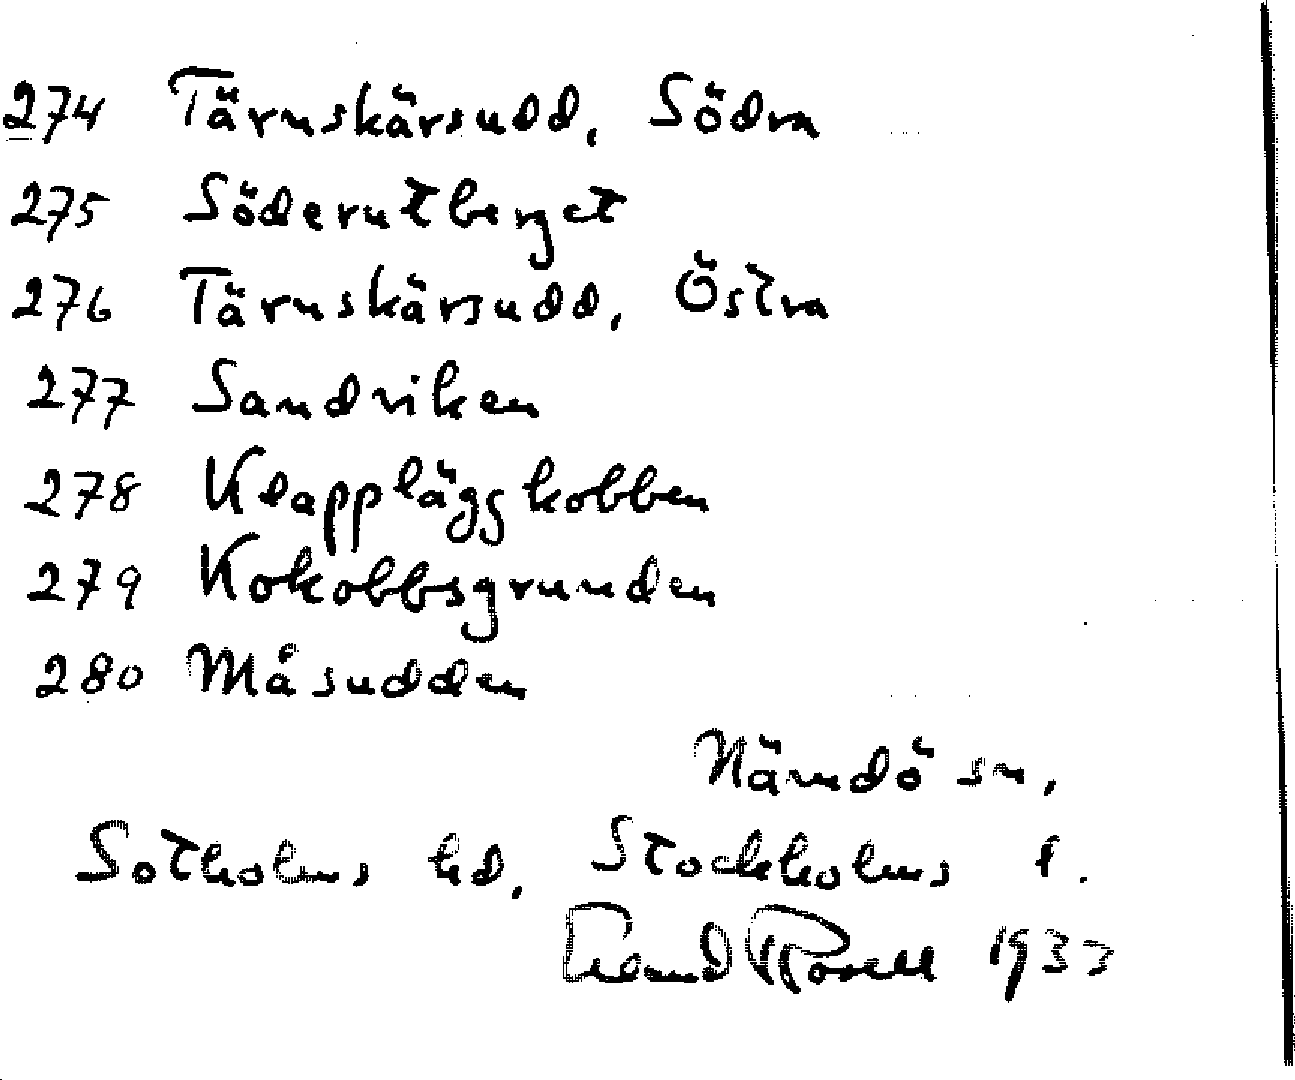 274 Tärnskärsudd, Södra
275 Söderutberget
276 Tärnskärsudd, Östra
277 Sandviken
278 Klappläggskobben
279 Kokobbsgrunden
280 Måsudden
Nämdö sn,
Sotholms hd, Stockholms l.
1933